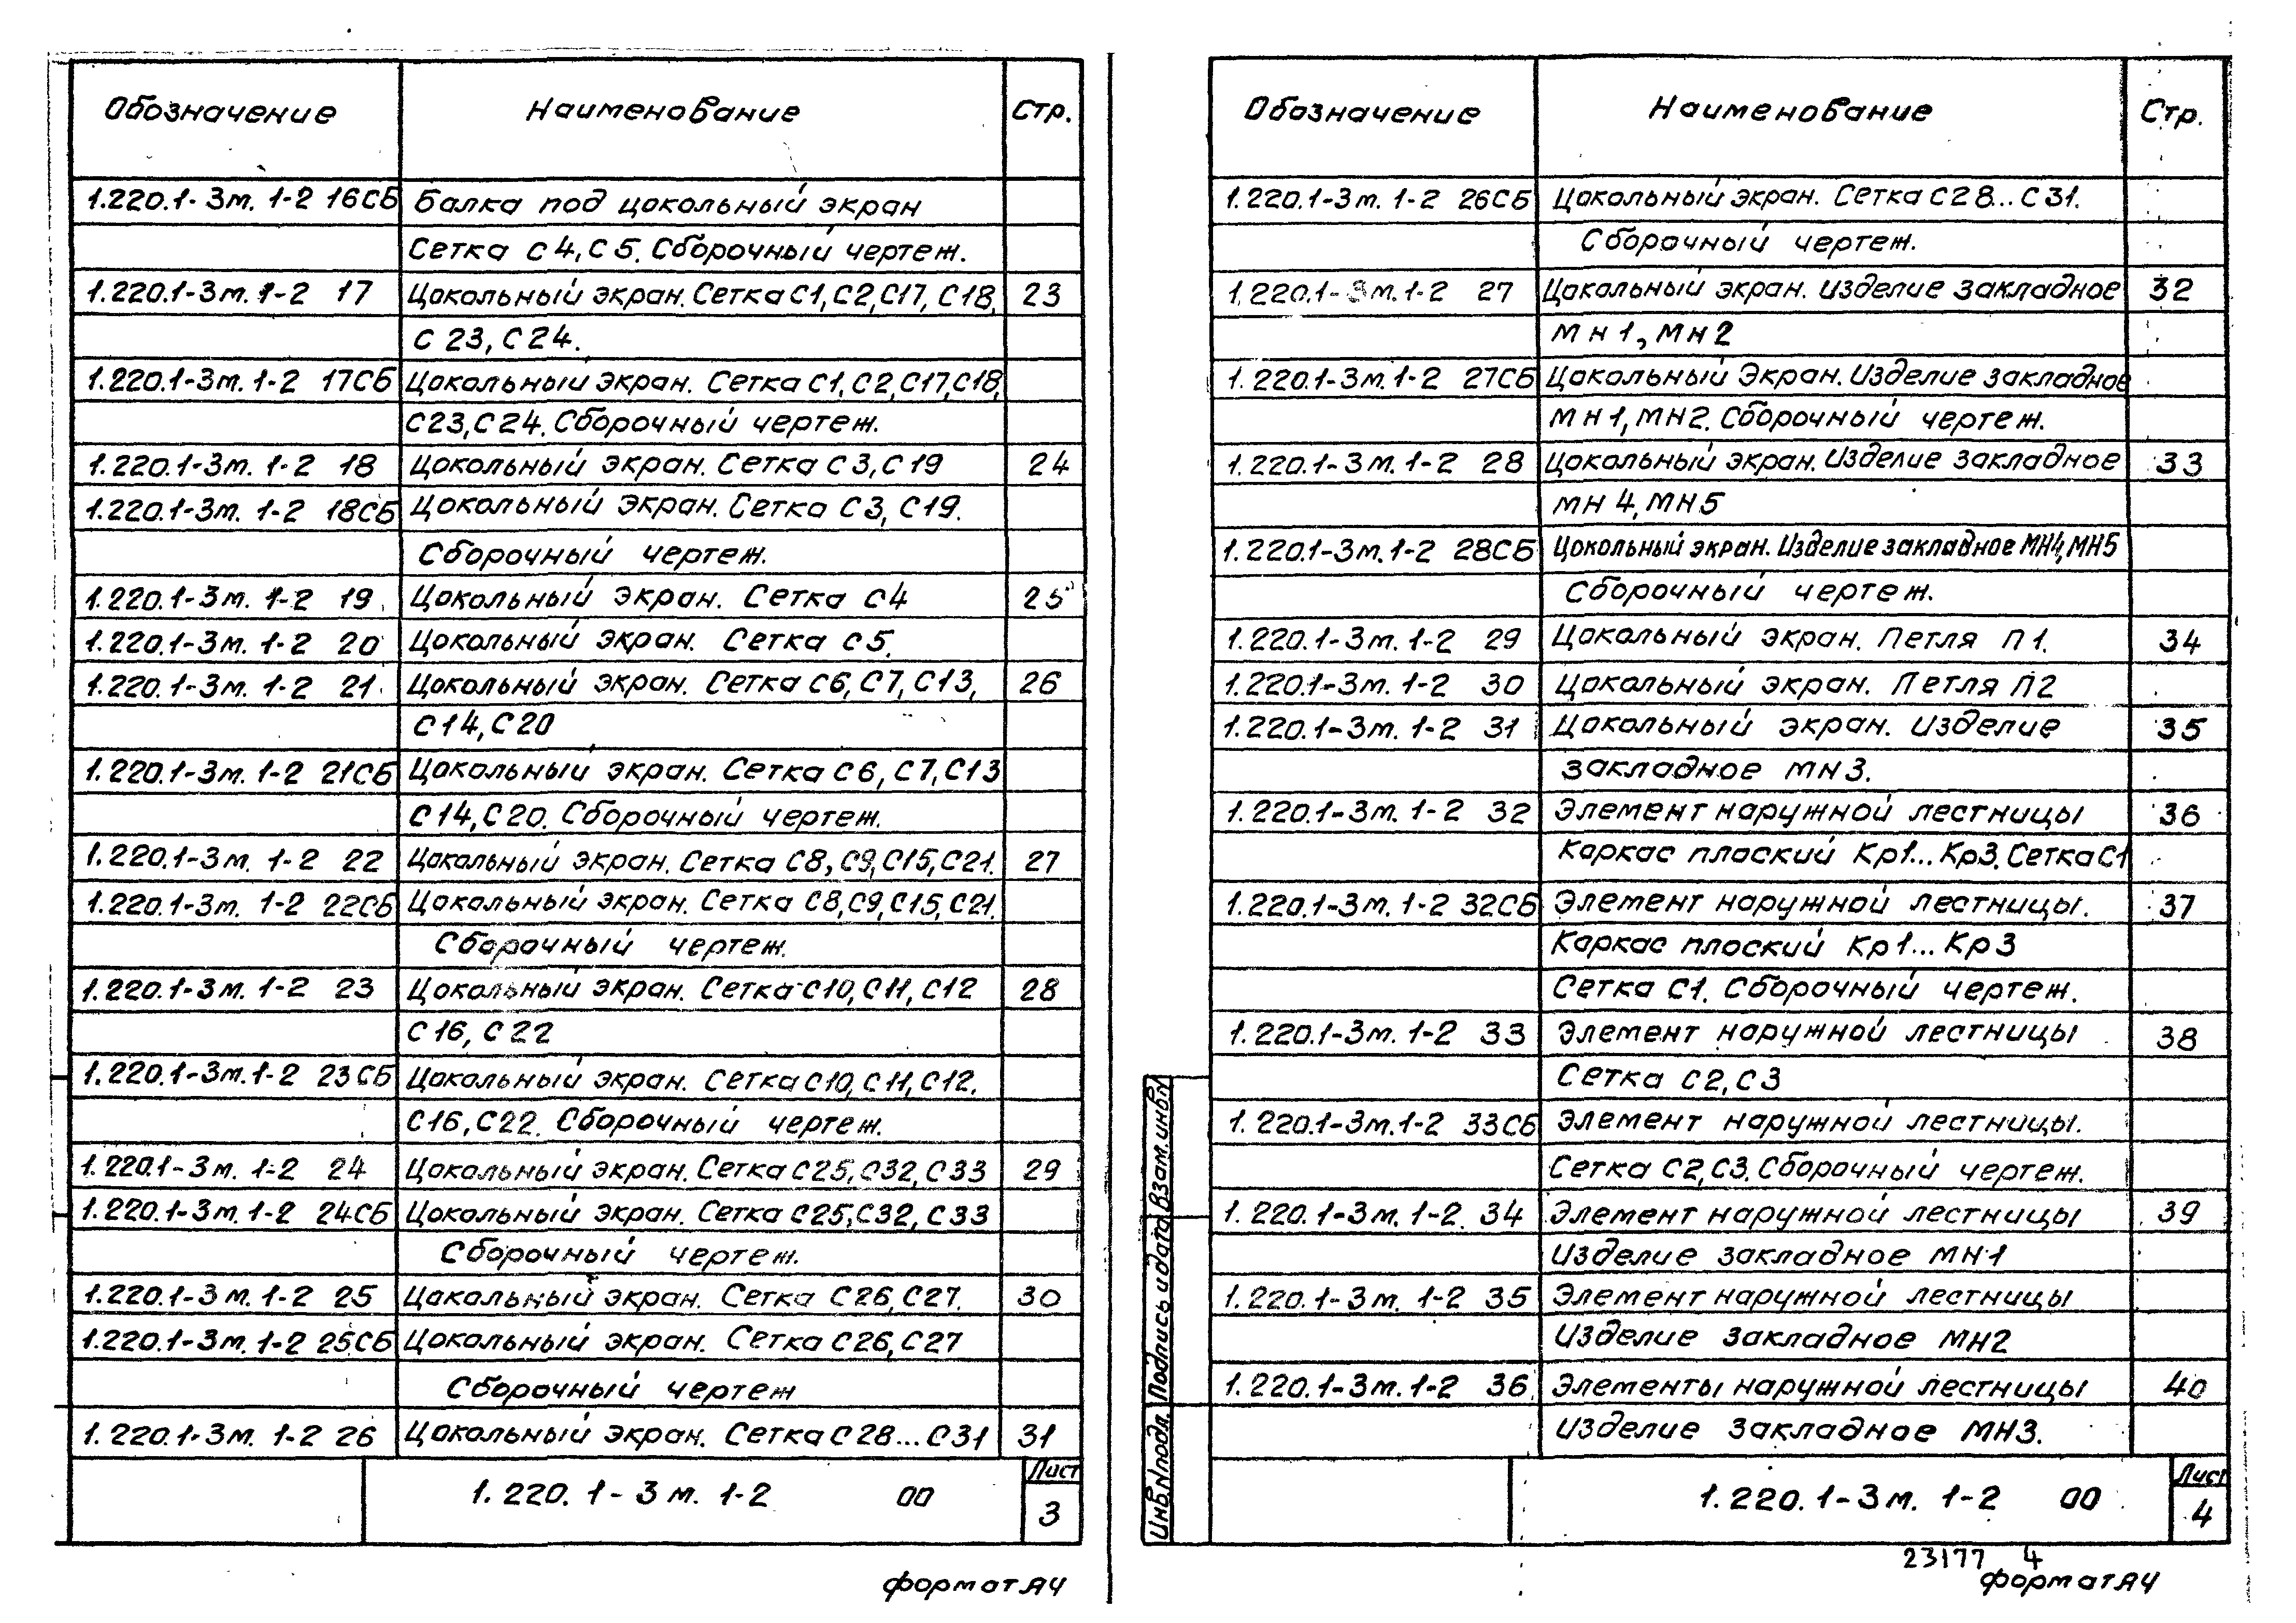 Обозначение Наименование Стр.
1.220.1-3м. 1-2 16СБ Балка под цокольный экран
Сетка С4, С5. Сборочный чертеж.
1.220.1-3м. 1-2 17 Цокольный экран. Сетка С1, С2, С17, С18, 23
С23, С24.
1.220.1-3м. 1-2 17СБ Цокольный экран. Сетка С1, С2, С17, С18,
С23, С24. Сборочный чертеж.
1.220.1-3м. 1-2 18 Цокольный экран. Сетка С3, С19 24
1.220.1-3м. 1-2 18СБ Цокольный экран. Сетка С3, С19.
Сборочный чертеж.
1.220.1-3м. 1-2 19 Цокольный экран. Сетка С4 25
1.220.1-3м. 1-2 20 Цокольный экран. Сетка С5.
1.220.1-3м. 1-2 21 Цокольный экран. Сетка С6, С7, С13, 26
С14, С20
1.220.1-3м. 1-2 21СБ Цокольный экран. Сетка С6, С7, С13
С14, С20. Сборочный чертеж.
1.220.1-3м. 1-2 22 Цокольный экран. Сетка С8, С9, С15, С21. 27
1.220.1-3м. 1-2 22СБ Цокольный экран. Сетка С8, С9, С15, С21.
Сборочный чертеж.
1.220.1-3м. 1-2 23 Цокольный экран. Сетка С10, С11, С12 28
С16, С22
1.220.1-3м. 1-2 23СБ Цокольный экран. Сетка С10, С11, С12.
С16, С22. Сборочный чертеж.
1.220.1-3м. 1-2 24 Цокольный экран. Сетка С25, С32, С33 29
1.220.1-3м. 1-2 24СБ Цокольный экран. Сетка С25, С32, С33
Сборочный чертеж.
1.220.1-3м. 1-2 25 Цокольный экран. Сетка С26, С27. 30
1.220.1-3м. 1-2 25СБ Цокольный экран. Сетка С26, С27
Сборочный чертеж
1.220.1-3м. 1-2 26 Цокольный экран. Сетка С28...С31 31
1.220.1-3м. 1-2 00
Лист
3
формат А4
Обозначение Наименование Стр.
1.220.1-3м. 1-2 26СБ Цокольный экран. Сетка С28...С31.
Сборочный чертеж.
1.220.1-3м. 1-2 27 Цокольный экран. Изделие закладное 32
МН1, МН2
1.220.1-3м. 1-2 27СБ Цокольный Экран. Изделие закладное
МН1, МН2. Сборочный чертеж.
1.220.1-3м. 1-2 28 Цокольный экран. Изделие закладное 33
МН4, МН5
1.220.1-3м. 1-2 28СБ Цокольный экран. Изделие закладное МН4, МН5
Сборочный чертеж.
1.220.1-3м. 1-2 29 Цокольный экран. Петля П1. 34
1.220.1-3м. 1-2 30 Цокольный экран. Петля П2
1.220.1-3м. 1-2 31 Цокольный экран. Изделие 35
закладное МН3.
1.220.1-3м. 1-2 32 Элемент наружной лестницы 36
Каркас плоский Кр1...Кр3. Сетка С1
1.220.1-3м. 1-2 32СБ Элемент наружной лестницы. 37
Каркас плоский Кр1...Кр3
Сетка С1. Сборочный чертеж.
1.220.1-3м. 1-2 33 Элемент наружной лестницы 38
Сетка С2, С3
1.220.1-3м. 1-2 33СБ Элемент наружной лестницы.
Сетка С2, С3. Сборочный чертеж.
1.220.1-3м. 1-2. 34 Элемент наружной лестницы 39
Изделие закладное МН1
1.220.1-3м. 1-2 35 Элемент наружной лестницы
Изделие закладное МН2
1.220.1-3м. 1-2 36 Элементы наружной лестницы 40
Изделие закладное МН3.
Инв.N подл. Подпись и дата Взам.инв.N
1.220.1-3м. 1-2 00
Лист
4
23177 4
формат А4